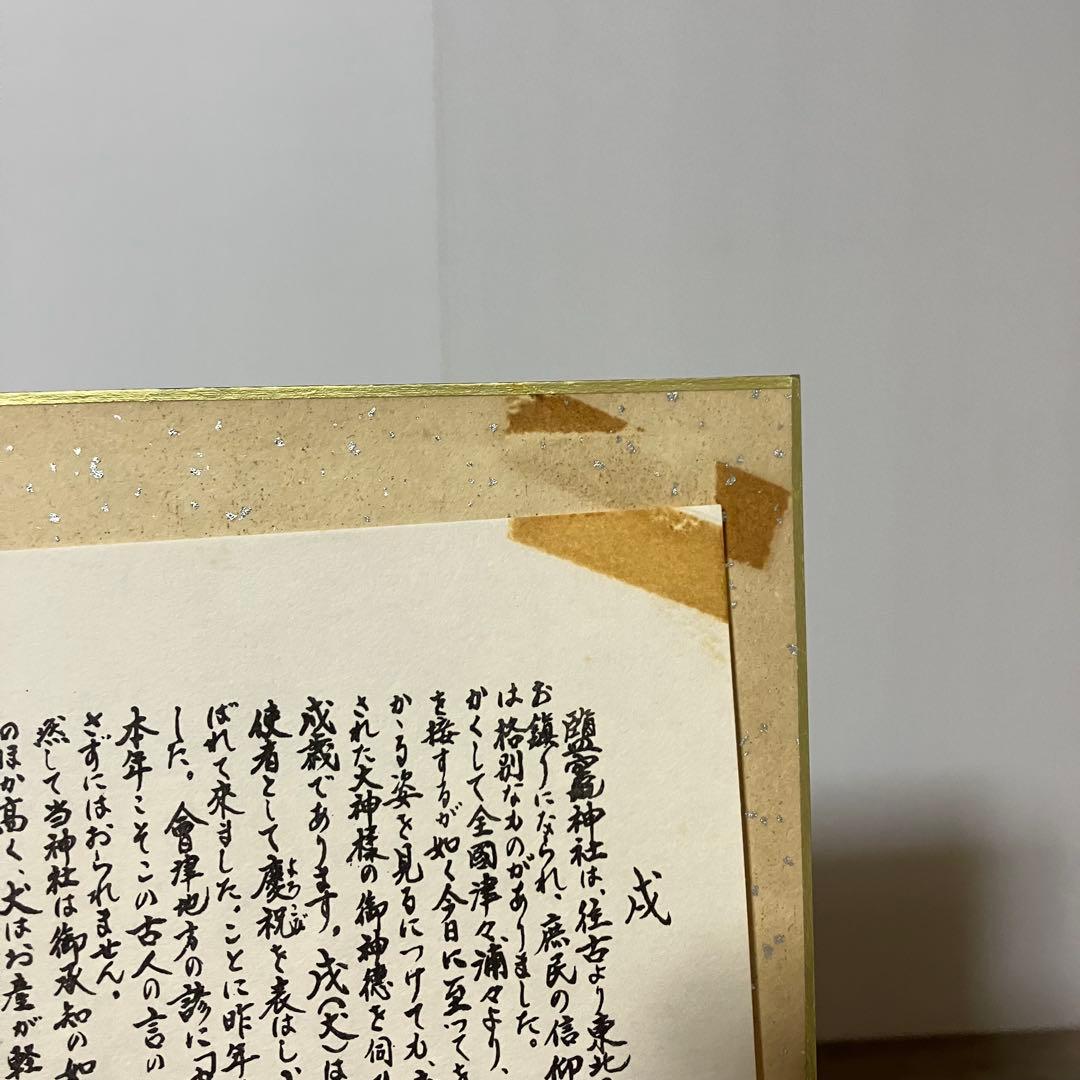 戌
鹽竈神社は、往古より東北
お鎮りになられ、庶民の信仰
は格別なものがありました。
かくして全國津々浦々より、
を接するが如く今日に至つてを
かゝる姿を見るにつけても、
された大神様の御神徳を伺
戌歳であります。戌(犬)は
使者として慶祝を表はし
よろこび
ばれて來ました。ことに昨年
した。會津地方の諺に「
本年こそこの古人の言の
さずにはおられません。
然して当神社は御承知の如
のほか高く、犬はお産が軽